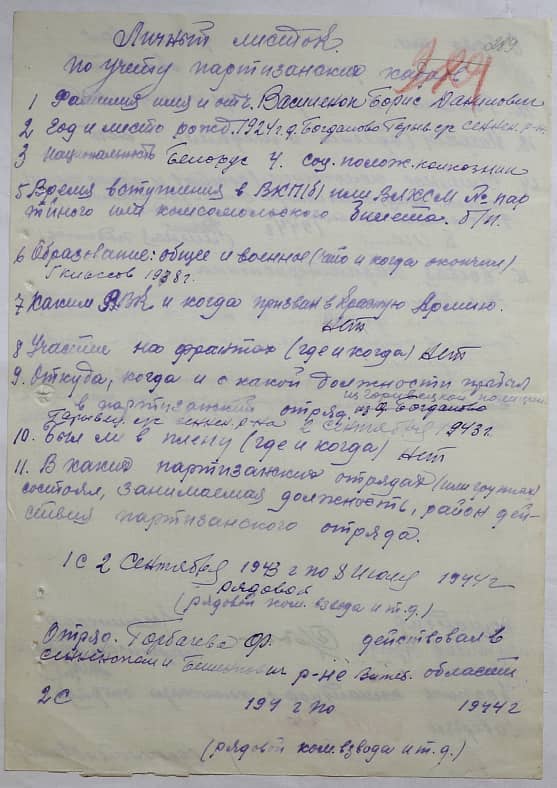 Личный листок
289
по учету партизанских кадров
1 Фамилия имя и отч. Василенок Борис Данилович
2 Год и место рожд. 1924 г. д. Богданово сеннен. р-н
3 Национальность Белорус 4. соц. полож. колхозник
5 Время вступления в ВКП(б) или ВЛКСМ № пар
тийного или комсомольского билета. б/п.
6 Образование: общее и военное (что и когда окончил)
классов 1938 г.
7 Каким РВК и когда призван в Красную Армию.
Нет
8 Участие на фронтах (где и когда) Нет
9. Откуда, когда и с какой должности прибыл
полиции
в партизанский отряд. Богданово
р-на 2 сентября 1943 г.
10. Был ли в плену (где и когда) Нет
11. В каких партизанских отрядах (или группах)
состоял, занимаемая должность, район дей-
ствия партизанского отряда.
1 С 2 Сентября 1943 г по 8 Июля 1944 г
рядовой
(рядовой ком. взвода и т. д.)
Отряд. Горбачева Ф. действовал в
сенненском и Бешенкович р-не Витеб. области
2 С 194 г по 1944 г
(рядовой ком. взвода и т. д.)